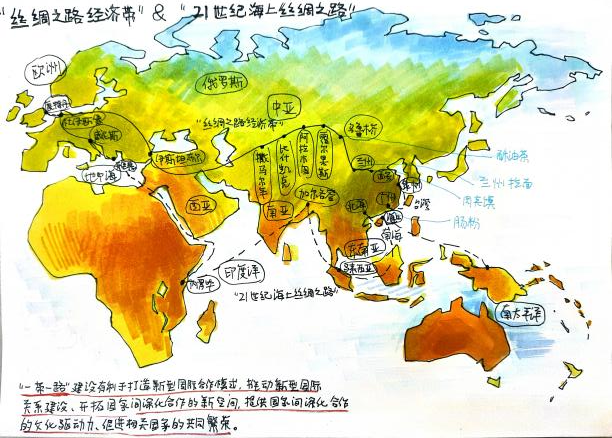 "丝绸之路经济带" & "21世纪海上丝绸之路"
欧洲
俄罗斯
中亚
"丝绸之路经济带"
乌鲁木齐
杜伊斯堡
伊斯坦布尔
撒马尔罕
比什凯克
阿拉木图
霍尔果斯
兰州
酥油茶
兰州拉面
肉夹馍
肠粉
地中海
西亚
南亚
加尔各答
北海
广州
台湾
南海
东南亚
马来西亚
印度洋
内罗毕
"21世纪海上丝绸之路"
南太平洋
"一带一路"建设有利于打造新型国际合作模式,推动新型国际
关系建设、开拓国家间深化合作的新空间,提供国家间深化合作
的文化驱动力、促进相关国家的共同繁荣。